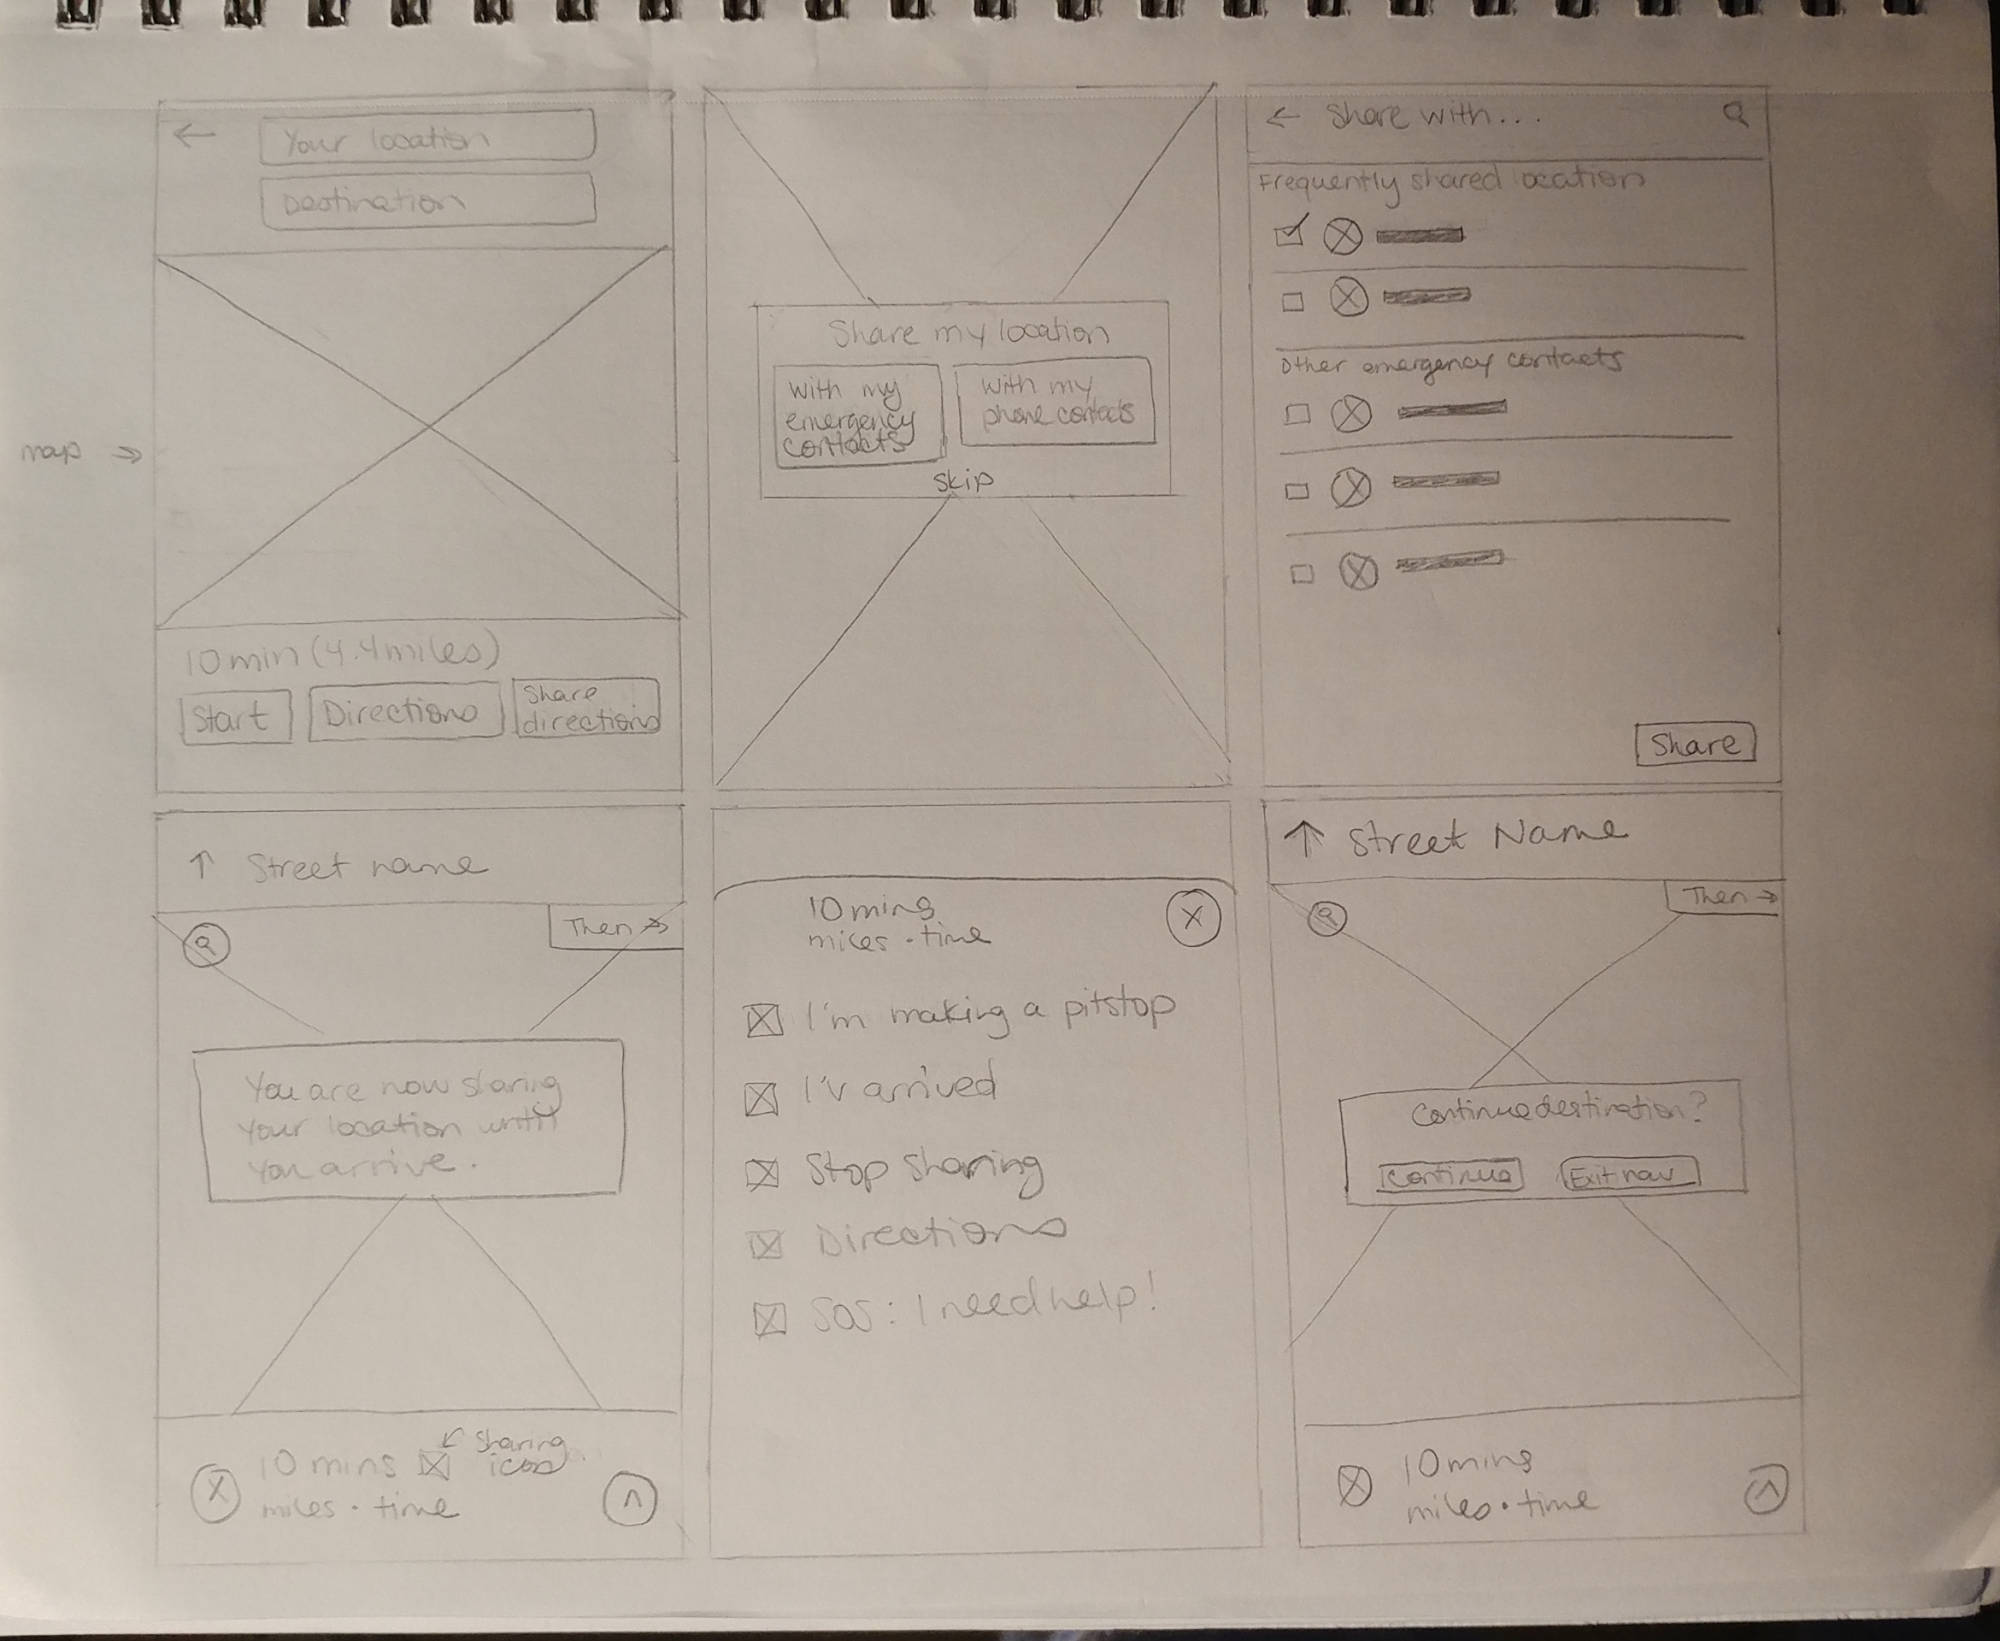 Your location
Destination
map →
10min (4.4 miles)
Start
Directions
Share
directions
Share my location
with my
emergency
contacts
with my
phone contacts
Skip
← Share with...
Frequently shared location
Other emergency contacts
Share
↑ Street name
Then →
You are now sharing
your location until
you arrive.
10 mins
↙ Sharing
icon
miles · time
10 mins
miles · time
X
I'm making a pitstop
I'v arrived
Stop sharing
Directions
SOS: I need help!
↑ Street Name
Then →
Continue destination?
Continue
Exit now
10 mins
miles · time